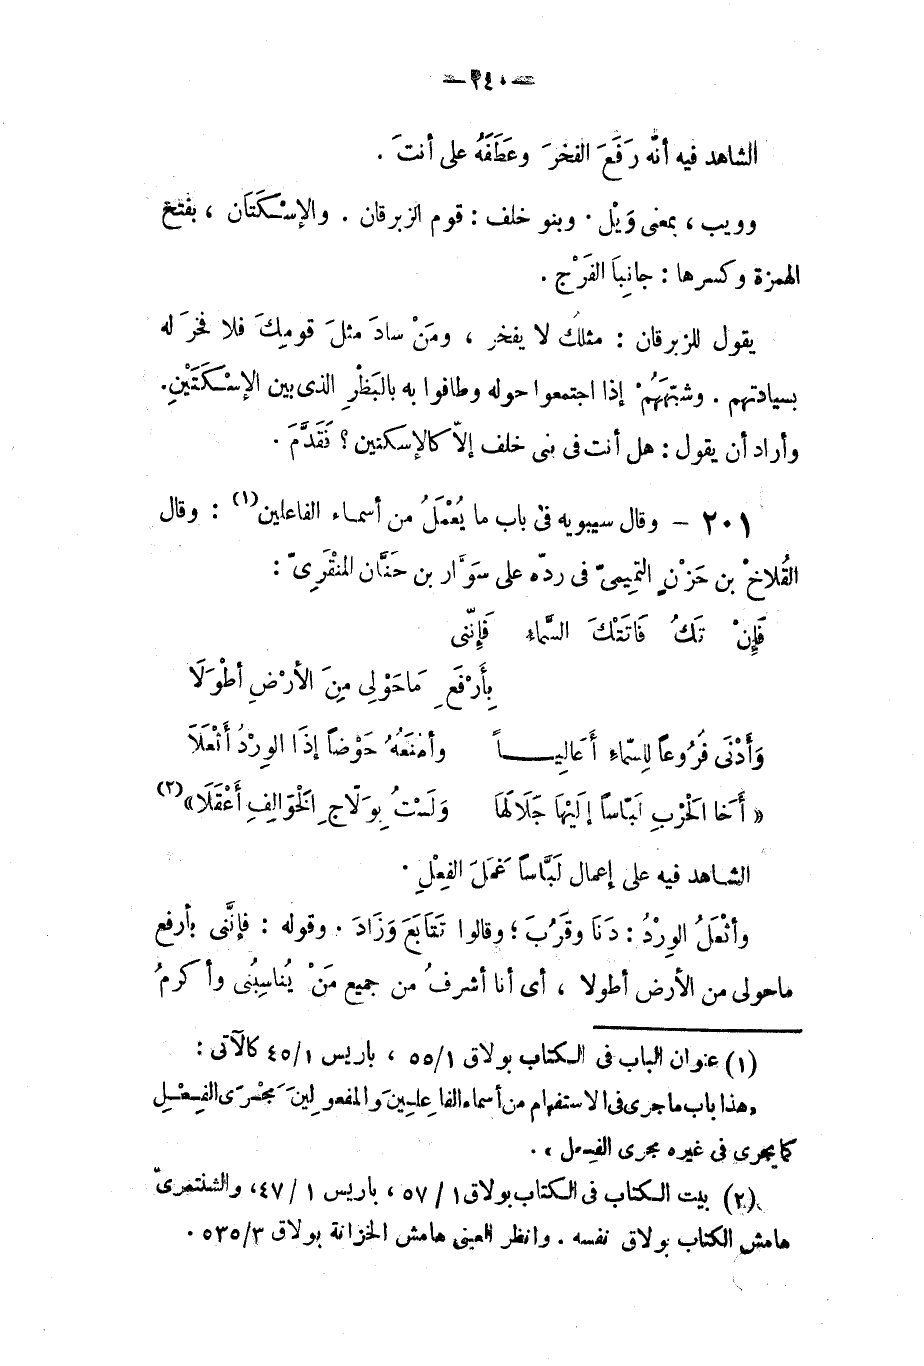 — ٢٤٠ —
الشاهد فيه أنّه رَفَعَ الفخرَ وعَطَفَهُ على أنتَ .
وويب ، بمعنى وَيْل . وبنو خلف : قوم الزبرقان . والإسْكَتَان ، بفتح
الهمزة وكسرها : جانِبَا الفَرْج .
يقول للزبرقان : مثلُك لا يفخر ، ومَنْ سادَ مثلَ قومِكَ فلا فخرَ له
بسيادتهم . وشبّهَهُمْ إذا اجتمعوا حوله وطافوا به بالبَظْرِ الذى بين الإسْكَتَيْنِ .
وأراد أن يقول : هل أنت فى بنى خلف إلاّ كالإسكتين ؟ فَقَدَّمَ .
٢٠١ – وقال سيبويه فى باب ما يُعْمَلُ من أسماء الفاعلين(١) : وقال
القُلاخْ بن حَزْنٍ التميمىّ فى ردّه على سَوَّار بن حَنَّان المنْقَرِىّ :
فَإِنْ تَكُ فَاتَتْكَ السَّماءِ فَإِنّنى
بِأَرْفَعِ مَاحَوْلِى مِنَ الأرْضِ أطْوَلَا
وَأَدْنَى فُرُوعاً لِلسّماءِ أَعَالِيــــاً وأمْنَعُهُ حَوْضاً إذَا الوِرْدُ أَثْعَلَا
« أَخَا الحَرْبِ لَبّاسًا إلَيْهَا جَلَالَهَا وَلَسْتُ بِوَلّاجِ الخَوَالِفِ أَعْقَلَا »(٢)
الشاهد فيه على إعمال لَبَّاسًا عَمَلَ الفِعْلِ .
وأثْعَلُ الوِرْدُ : دَنَا وقَرُبَ ؛ وقالوا تَتَابَعَ وَزَادَ . وقوله : فإنَّنى بأرفع
ماحولى من الأرض أطولا ، أى أنا أشرفُ من جميع مَنْ يُناسِبُنى وأكرمُ
(١) عنوان الباب فى الكتاب بولاق ١/٥٥ ، باريس ١/٤٥ كالآتى :
«هذا باب ماجرى فى الاستفهام من أسماء الفاعلِينَ والمفعولِينَ مَجْرَى الفِعْلِ
كما يجرى فى غيره مجرى الفعل » .
(٢) بيت الكتاب فى الكتاب بولاق ١/٥٧ ، باريس ١/٤٧، والشنتمرىّ
هامش الكتاب بولاق نفسه . وانظر العينى هامش الخزانة بولاق ٣/٥٣٥ .